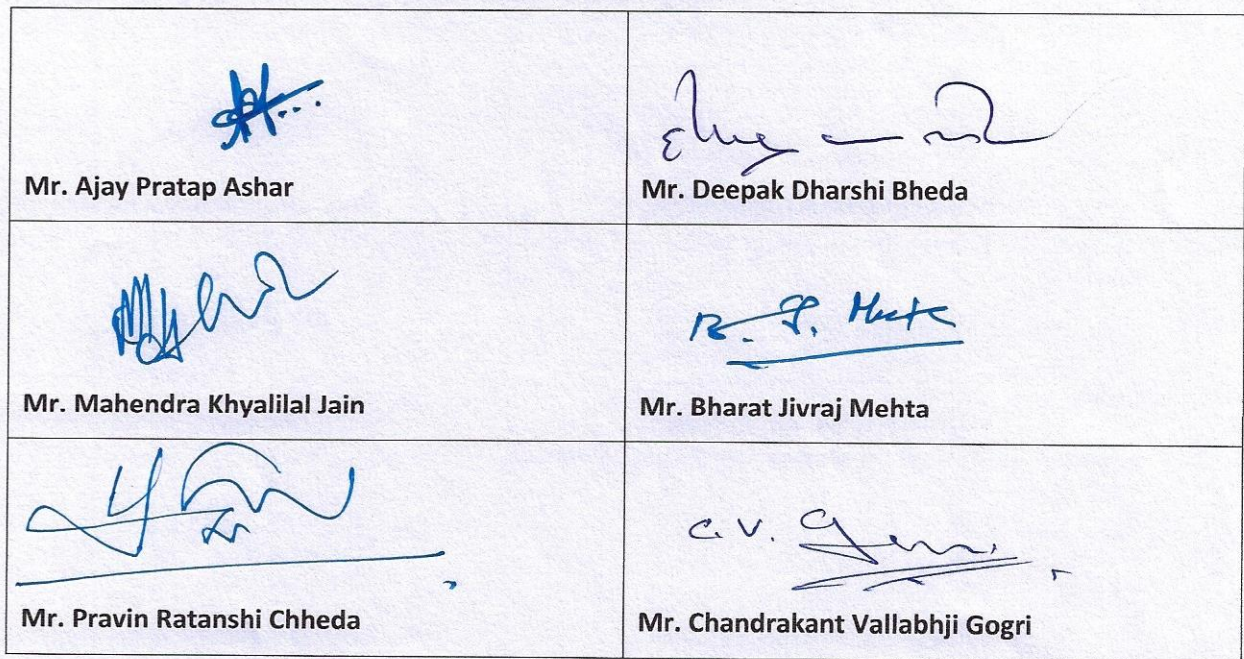 Mr. Ajay Pratap Ashar
Mr. Deepak Dharshi Bheda
Mr. Mahendra Khyalilal Jain
B. J. Mehta
Mr. Bharat Jivraj Mehta
Mr. Pravin Ratanshi Chheda
C. V. Gogri
Mr. Chandrakant Vallabhji Gogri